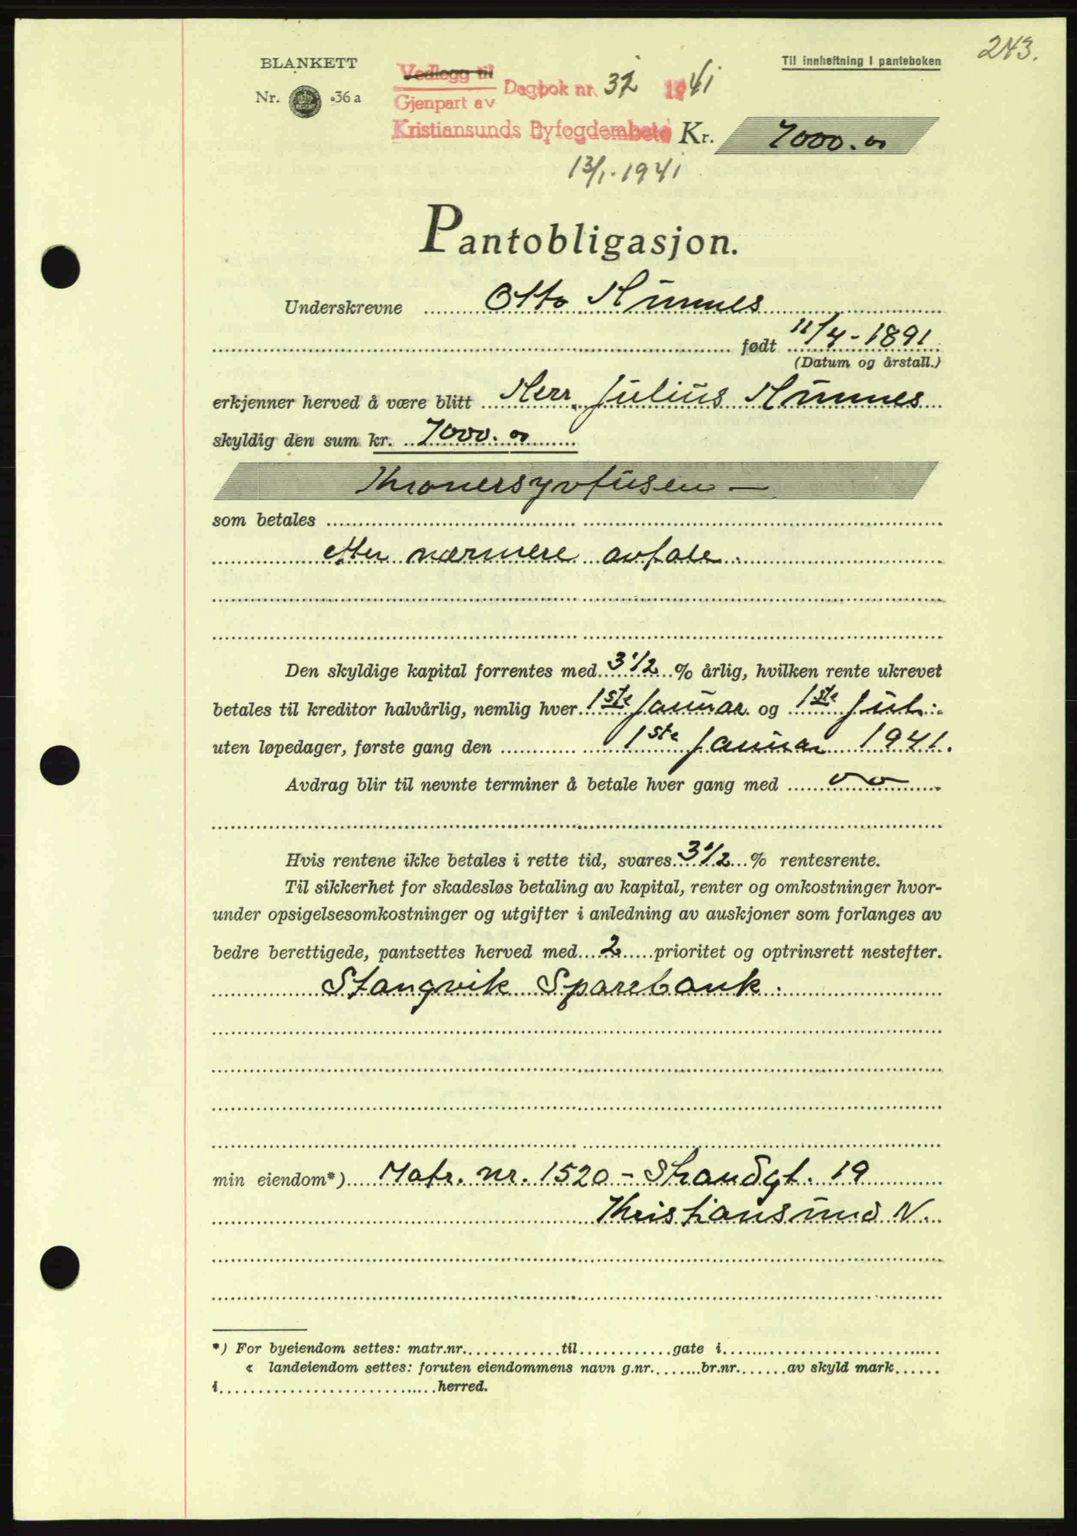 243.
BLANKETT
Nr. 36 a
Vedlegg til
Gjenpart av
Dagbok nr. 32 1941
Kristiansunds Byfogdembete
13/1-1941
Til innheftning i panteboken
Kr. 7000.00
Pantobligasjon.
Underskrevne Otto
født 11/4-1891
(Datum og årstall.)
erkjenner herved å være blitt Herr. Julius
skyldig den sum kr. 7000.00
Kronersyvtusen —
som betales
etter nærmere avtale.
Den skyldige kapital forrentes med 3 1/2 % årlig, hvilken rente ukrevet
betales til kreditor halvårlig, nemlig hver 1ste Januar og 1ste Juli
uten løpedager, første gang den 1ste Januar 1941.
Avdrag blir til nevnte terminer å betale hver gang med
Hvis rentene ikke betales i rette tid, svares 3 1/2 % rentesrente.
Til sikkerhet for skadesløs betaling av kapital, renter og omkostninger hvor-
under opsigelsesomkostninger og utgifter i anledning av auskjoner som forlanges av
bedre berettigede, pantsettes herved med 2 prioritet og optrinsrett nestefter.
Stangvik Sparebank.
min eiendom*) Matr. nr. 1520 - Strandgt. 19
Kristiansund N.
*) For byeiendom settes: matr.nr. til gate i
« landeiendom settes: foruten eiendommens navn g.nr. br.nr. av skyld mark
i herred.